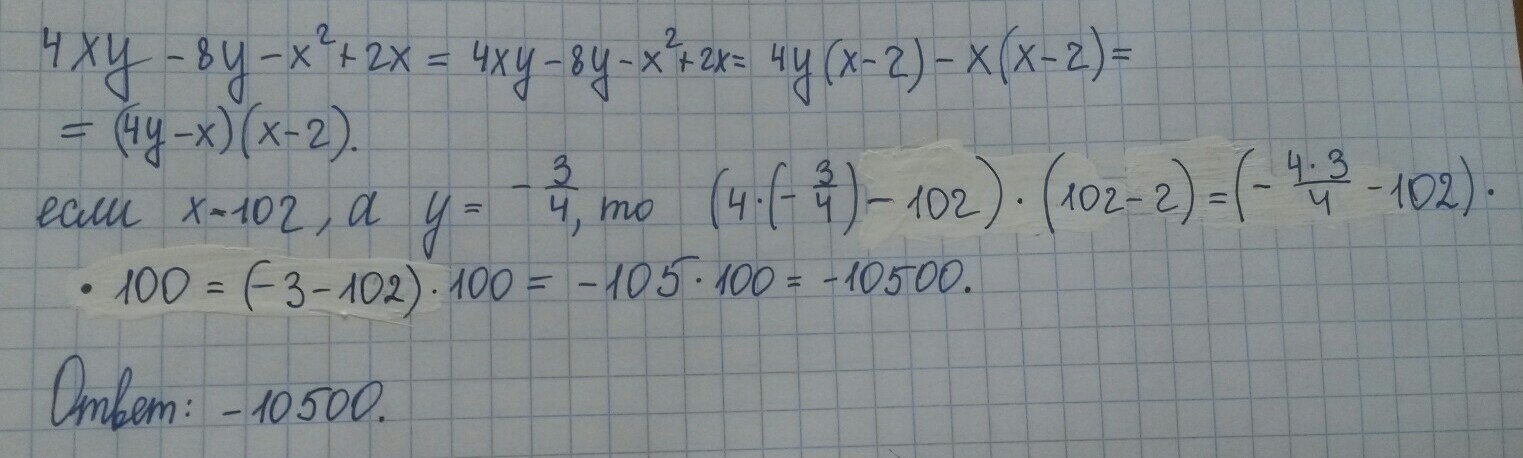 4xy - 8y - x² + 2x = 4xy - 8y - x² + 2x = 4y(x-2) - x(x-2) =
= (4y - x)(x - 2).
если x = 102, а y = -3/4, то (4·(-3/4) - 102)·(102 - 2) = (-4·3/4 - 102)·
·100 = (-3 - 102)·100 = -105·100 = -10500.
Ответ: -10500.